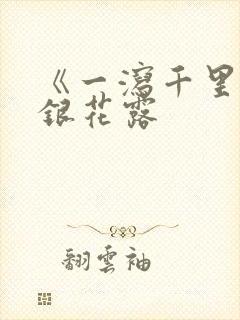 《一瀉千里
銀花露
翻雲袖